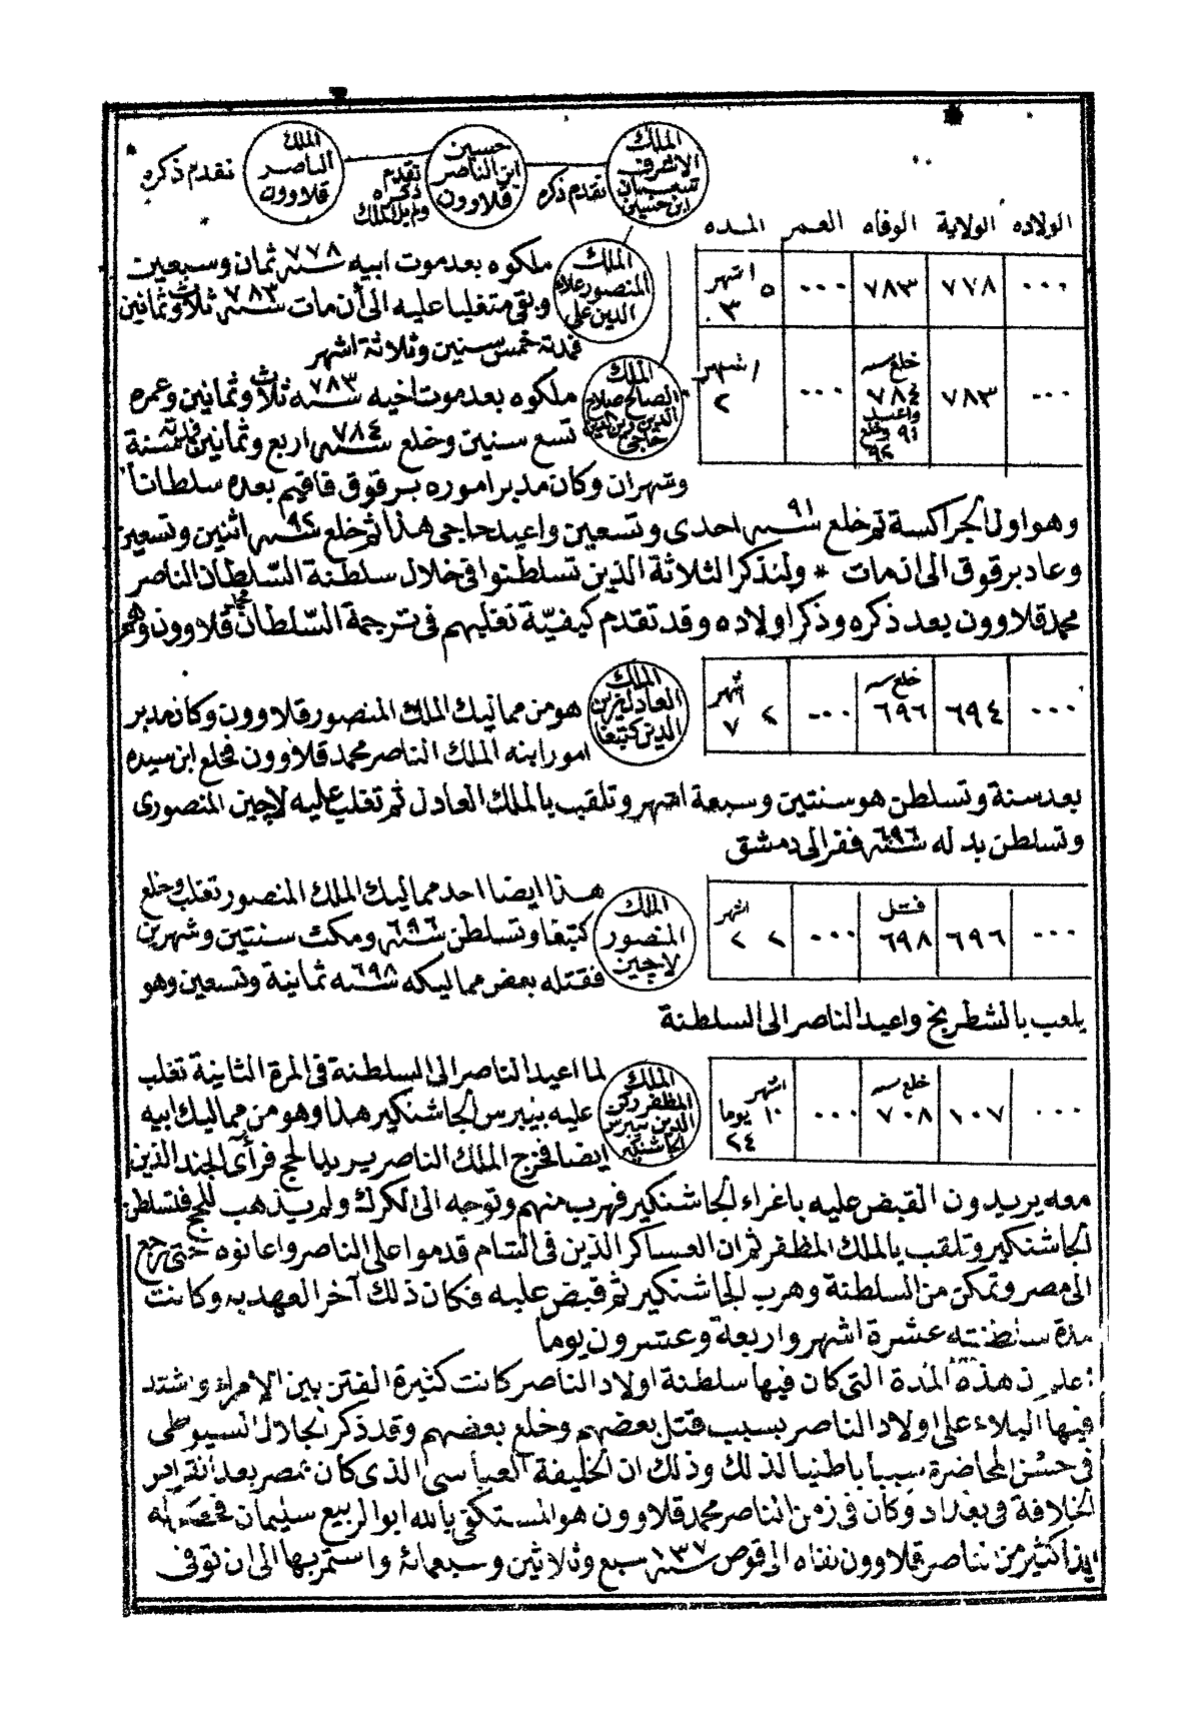 الملك الاشرف شعبان ابن حسين
تقدم ذكره
حسين ابن الناصر قلاوون
تقدم ذكره ولم يل الملك
الملك الناصر قلاوون
تقدم ذكره
الولاده الولاية الوفاه العمر المده
٠٠٠ ٧٧٨ ٧٨٣ ٠٠٠ ٥ اشهر ٣
الملك المنصور علاء الدين على
ملكوه بعد موت ابيه سنة ٧٧٨ ثمان وسبعين
وبقى متغلبا عليه الى أن مات سنة ٧٨٣ ثلاث وثمانين
فمدته خمس سنين وثلاثة اشهر
٠٠٠ ٧٨٣ خلع سنه ٧٨٤ واعيد ٩١ وخلع ٩٢ ٠٠٠ ١ شهر ٢
الملك الصالح صلاح الدين زين الدين حاجى
ملكوه بعد موت اخيه سنة ٧٨٣ ثلاث وثمانين وعمره
تسع سنين وخلع سنة ٧٨٤ اربع وثمانين فمدته سنة
وشهران وكان مدبر اموره برقوق فاقيم بعده سلطانا
وهو اول الجراكسة ثم خلع سنة ٩١ احدى وتسعين واعيد حاجى هذا ثم خلع سنة ٩٢ اثنين وتسعين
وعاد برقوق الى ان مات * ولنذكر الثلاثة الذين تسلطنوا فى خلال سلطنة السّلطان الناصر
محمد قلاوون بعد ذكره وذكر اولاده وقد تقدم كيفيّة تغلبهم فى ترجمة السّلطان محمد قلاوون وهم
٠٠٠ ٦٩٤ خلع سنه ٦٩٦ ٠٠٠ ٢ اشهر ٧
الملك العادل زين الدين كتبغا
هو من مماليك الملك المنصور قلاوون وكان مدبر
امور ابنه الملك الناصر محمد قلاوون فخلع ابن سيده
بعد سنة وتسلطن هو سنتين وسبعة اشهر وتلقب بالملك العادل ثم تغلب عليه لاچين المنصورى
وتسلطن بدله سنة ٦٩٦ ففر الى دمشق
٠٠٠ ٦٩٦ قتل ٦٩٨ ٠٠٠ ٢ اشهر ٢
الملك المنصور لاچين
هذا ايضا احد مماليك الملك المنصور تغلب وخلع
كتبغا وتسلطن سنة ٦٩٦ ومكث سنتين وشهرين
فقتله بعض مماليكه سنة ٦٩٨ ثمانية وتسعين وهو
يلعب بالشطرنج واعيد الناصر الى السلطنة
٠٠٠ ١٠٧ خلع سنه ٧٠٨ ٠٠٠ اشهر ١٠ يوما ٢٤
الملك المظفر ركن الدين بيبرس الجاشنكير
لما اعيد الناصر الى السلطنة فى المرة الثانية تغلب
عليه بيبرس الجاشنكير هذا وهو من مماليك ابيه
ايضا فخرج الملك الناصر يريد الحج فرأى الجند الذين
معه يريدون القبض عليه باغراء الجاشنكير فهرب منهم وتوجه الى الكرك ولم يذهب للحج فتسلطن
الجاشنكير وتلقب بالملك المظفر ثم ان العساكر الذين فى الشام قدموا على الناصر واعانوه حتى رجع
الى مصر وتمكن من السلطنة وهرب الجاشنكير ثم قبض عليه فكان ذلك آخر العهد به وكانت
مدة سلطنته عشرة اشهر واربعة وعشرون يوما
اعلم ان هذه المدة التى كان فيها سلطنة اولاد الناصر كانت كثيرة الفتن بين الامراء واشتد
فيها البلاء على اولاد الناصر بسبب قتل بعضهم وخلع بعضهم وقد ذكر الجلال السيوطى
فى حسن المحاضرة سببا باطنيا لذلك وذلك ان الخليفة العباسى الذى كان بمصر بعد انقراض
الخلافة فى بغداد وكان فى زمن الناصر محمد قلاوون هو المستكفى بالله ابو الربيع سليمان فحصل له
ايذا كثير من الناصر قلاوون نفاه الى قوص سنة ١٣٧ سبع وثلاثين وسبعمائة واستمر بها الى ان توفى